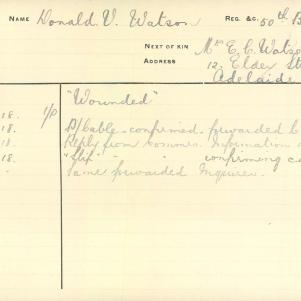 NAME Donald V. Watson REG. &C. 50th B
NEXT OF KIN Mrs E. C. Watso
ADDRESS 12, Elder St
Adelaide
18. 1/p "Wounded"
18. D/bable - confirmed - forwarded
18. Reply from commn. Information
18. "Slip" " " confirming ca
Same forwarded Inquirer.